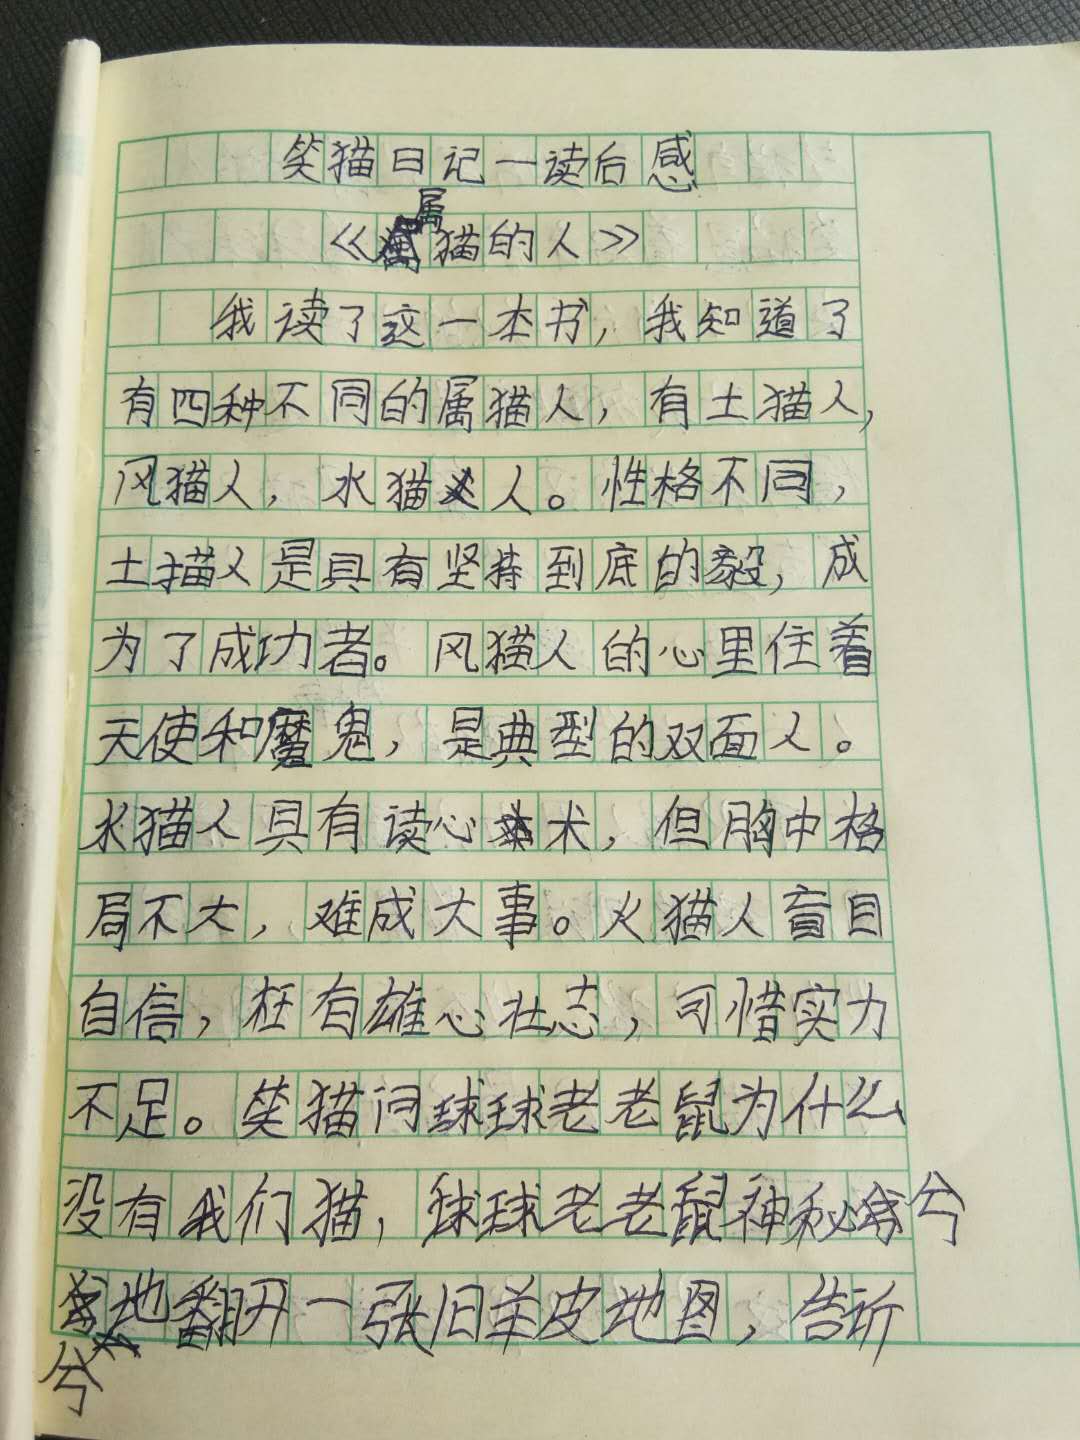 笑猫日记一读后感
《属猫的人》
我读了这一本书，我知道了
有四种不同的属猫人，有土猫人，
风猫人，水猫人。性格不同，
土描人是具有坚持到底的毅，成
为了成功者。风猫人的心里住着
天使和魔鬼，是典型的双面人。
水猫人具有读心术，但胸中格
局不大，难成大事。火猫人盲目
自信，枉有雄心壮志，可惜实力
不足。笑猫问球球老老鼠为什么
没有我们猫，球球老老鼠神秘兮
地翻开一张旧羊皮地图，告䜣
兮